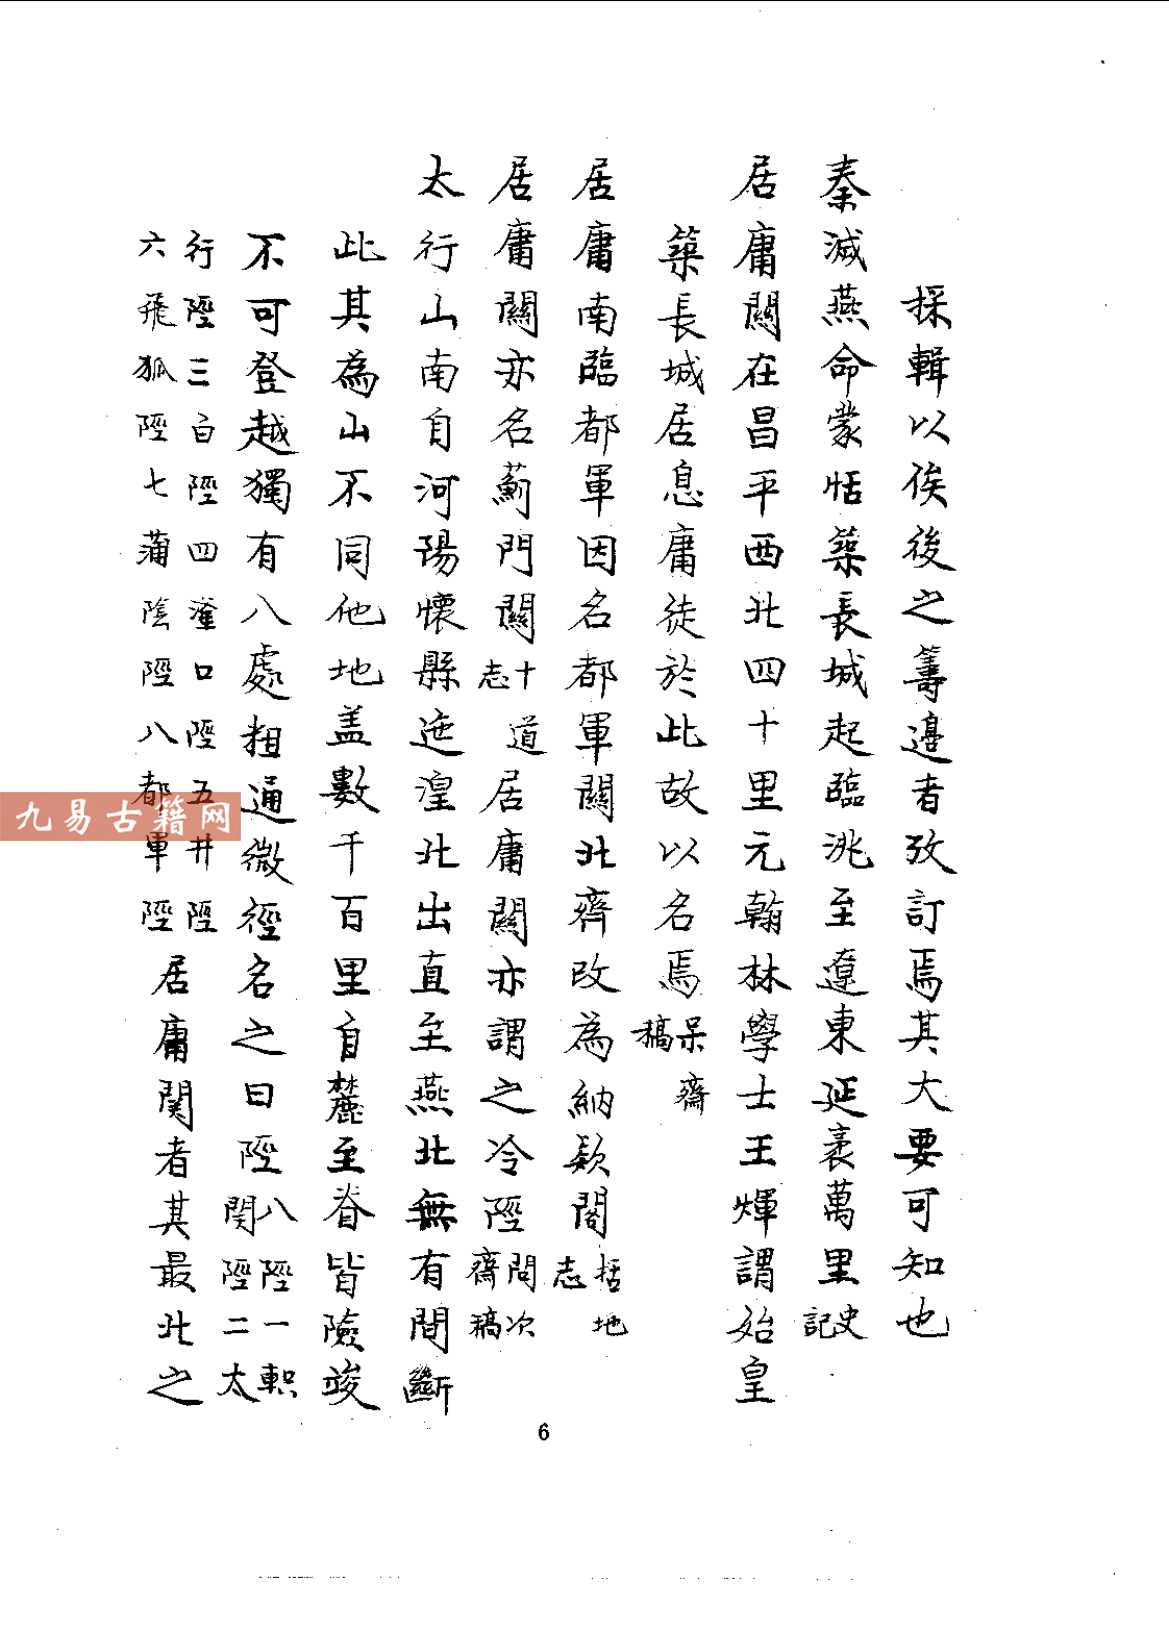 採輯以俟後之籌邊者攷訂焉其大要可知也
秦滅燕命蒙恬築長城起臨洮至遼東延袤萬里史記
居庸關在昌平西北四十里元翰林學士王煇謂始皇
築長城居息庸徒於此故以名焉呆齋稿
居庸南臨都軍因名都軍關北齊改為納欵閣括地志
居庸關亦名薊門關十道志居庸關亦謂之冷陘問次齋稿
太行山南自河陽懷縣迤湟北出直至燕北無有間斷
此其為山不同他地盖數千百里自麓至眷皆險竣
不可登越獨有八處粗通微徑名之曰陘八陘一軹関陘二太
行陘三白陘四滏口陘五井陘六飛狐陘七蒲陰陘八都軍陘居庸関者其最北之
九易古籍网
6